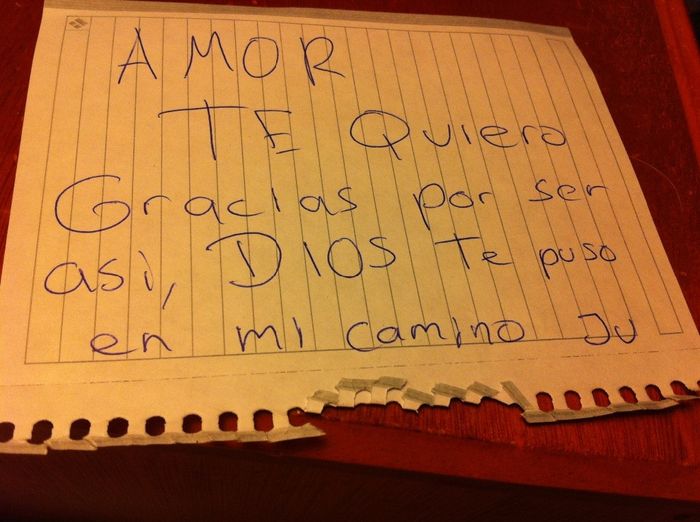 AMOR
TE Quiero
Gracias por ser
asi, DIOS te puso
en mi camino JU